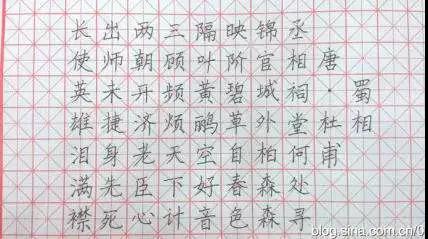 蜀相
唐·杜甫
丞相祠堂何处寻
锦官城外柏森森
映阶碧草自春色
隔叶黄鹂空好音
三顾频烦天下计
两朝开济老臣心
出师未捷身先死
长使英雄泪满襟
blog.sina.com.cn/